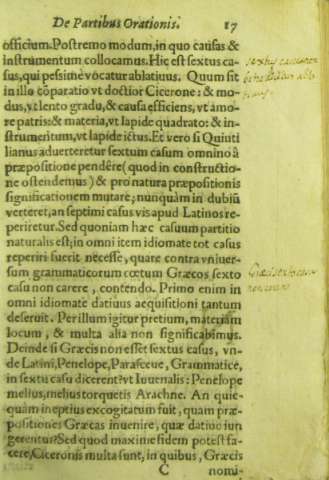 De Partibus Orationis. 17
officium. Postremo modum, in quo causas &
instrumentum collocamus. Hic est sextus ca-
sus, qui pessime vocatur ablatiuus. Quum sit
in illo cōparatio vt doctior Cicerone: & mo-
dus, vt lento gradu, & causa efficiens, vt amo-
re patris: & materia, vt lapide quadrato: & in-
strumentum, vt lapide ictus. Et vero si Quinti
lianus aduerteretur sextum casum omnino à
præpositione pendêre (quod in constructio-
ne ostendemus) & pro natura præpositionis
significationem mutare; nunquàm in dubiũ
verteret, an septimi casus vis apud Latinos re-
periretur. Sed quoniam hæc casuum partitio
naturalis est; in omni item idiomate tot casus
reperiri fuerit necesse, quare contra vniuer-
sum grammaticorum cœtum Græcos sexto
casu non carere, contendo. Primo enim in
omni idiomate datiuus acquisitioni tantum
deseruit. Per illum igitur pretium, materiam
locum, & multa alia non significabimus.
Deinde si Græcis non esset sextus casus, vn-
de Latini, Penelope, Parasceue, Grammatice,
in sextu casu dicerent? vt Iuuenalis: Penelope
melius, melius torquetis Arachne. An quic-
quàm ineptius excogitatum fuit, quam præ-
positiones Græcas inuenire, quæ datiuo iun
gerentur? Sed quod maxime fidem potest fa-
cere, Ciceronis multa sunt, in quibus, Græcis
C nomi-
sextus casus
Græci sexto casu
non carent